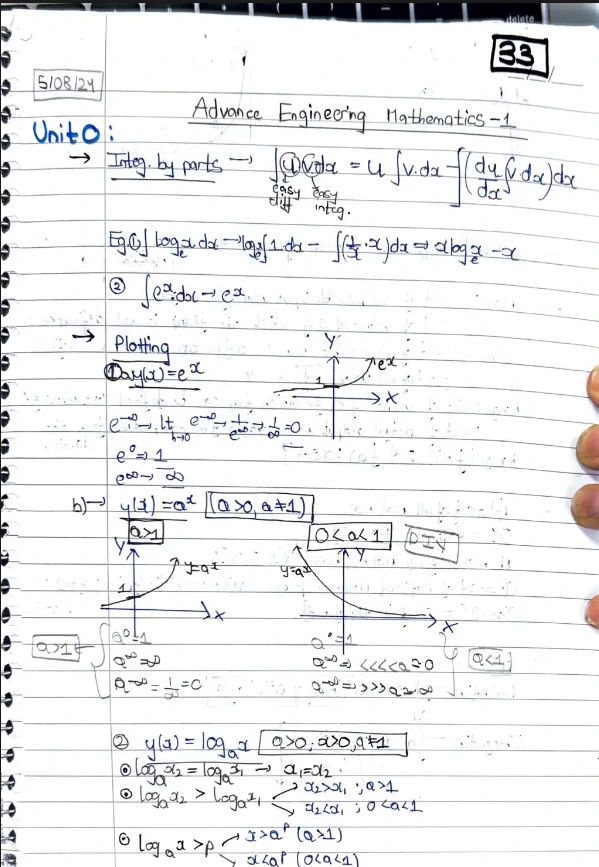 delete
33
5/08/24
Advance Engineering Mathematics-1
Unit 0:
→ Integ. by parts → ∫u v dx = u ∫v.dx - ∫(du/dx ∫v dx) dx
easy diff easy integ.
Eg. ① ∫logₑx.dx → logₑx∫1.dx - ∫(1/x . x)dx ⇒ x logₑx - x
② ∫eˣ.dx → eˣ
→ Plotting
① a) y(x) = eˣ
Y
eˣ
1
X
e^-∞ → lt e^-∞ → 1/e^∞ → 1/∞ = 0
e⁰ ⇒ 1
e^∞ → ∞
b) → y(x) = aˣ (a>0, a≠1)
a>1 0<a<1 DIY
Y Y
y=aˣ y=aˣ
1
X X
a>1 a⁰=1 a⁰=1 a<1
a^∞=∞ a^∞ ⇒ <<<<a≈0
a^-∞ = 1/∞ = 0 a^-∞ ⇒ >>>a≈∞
② y(x) = logₐx a>0, x>0, a≠1
logₐx₂ = logₐx₁ → x₁=x₂
logₐx₂ > logₐx₁ → x₂>x₁ ; a>1
→ x₂<x₁ ; 0<a<1
logₐx > p → x>aᵖ (a>1)
→ x<aᵖ (0<a<1)